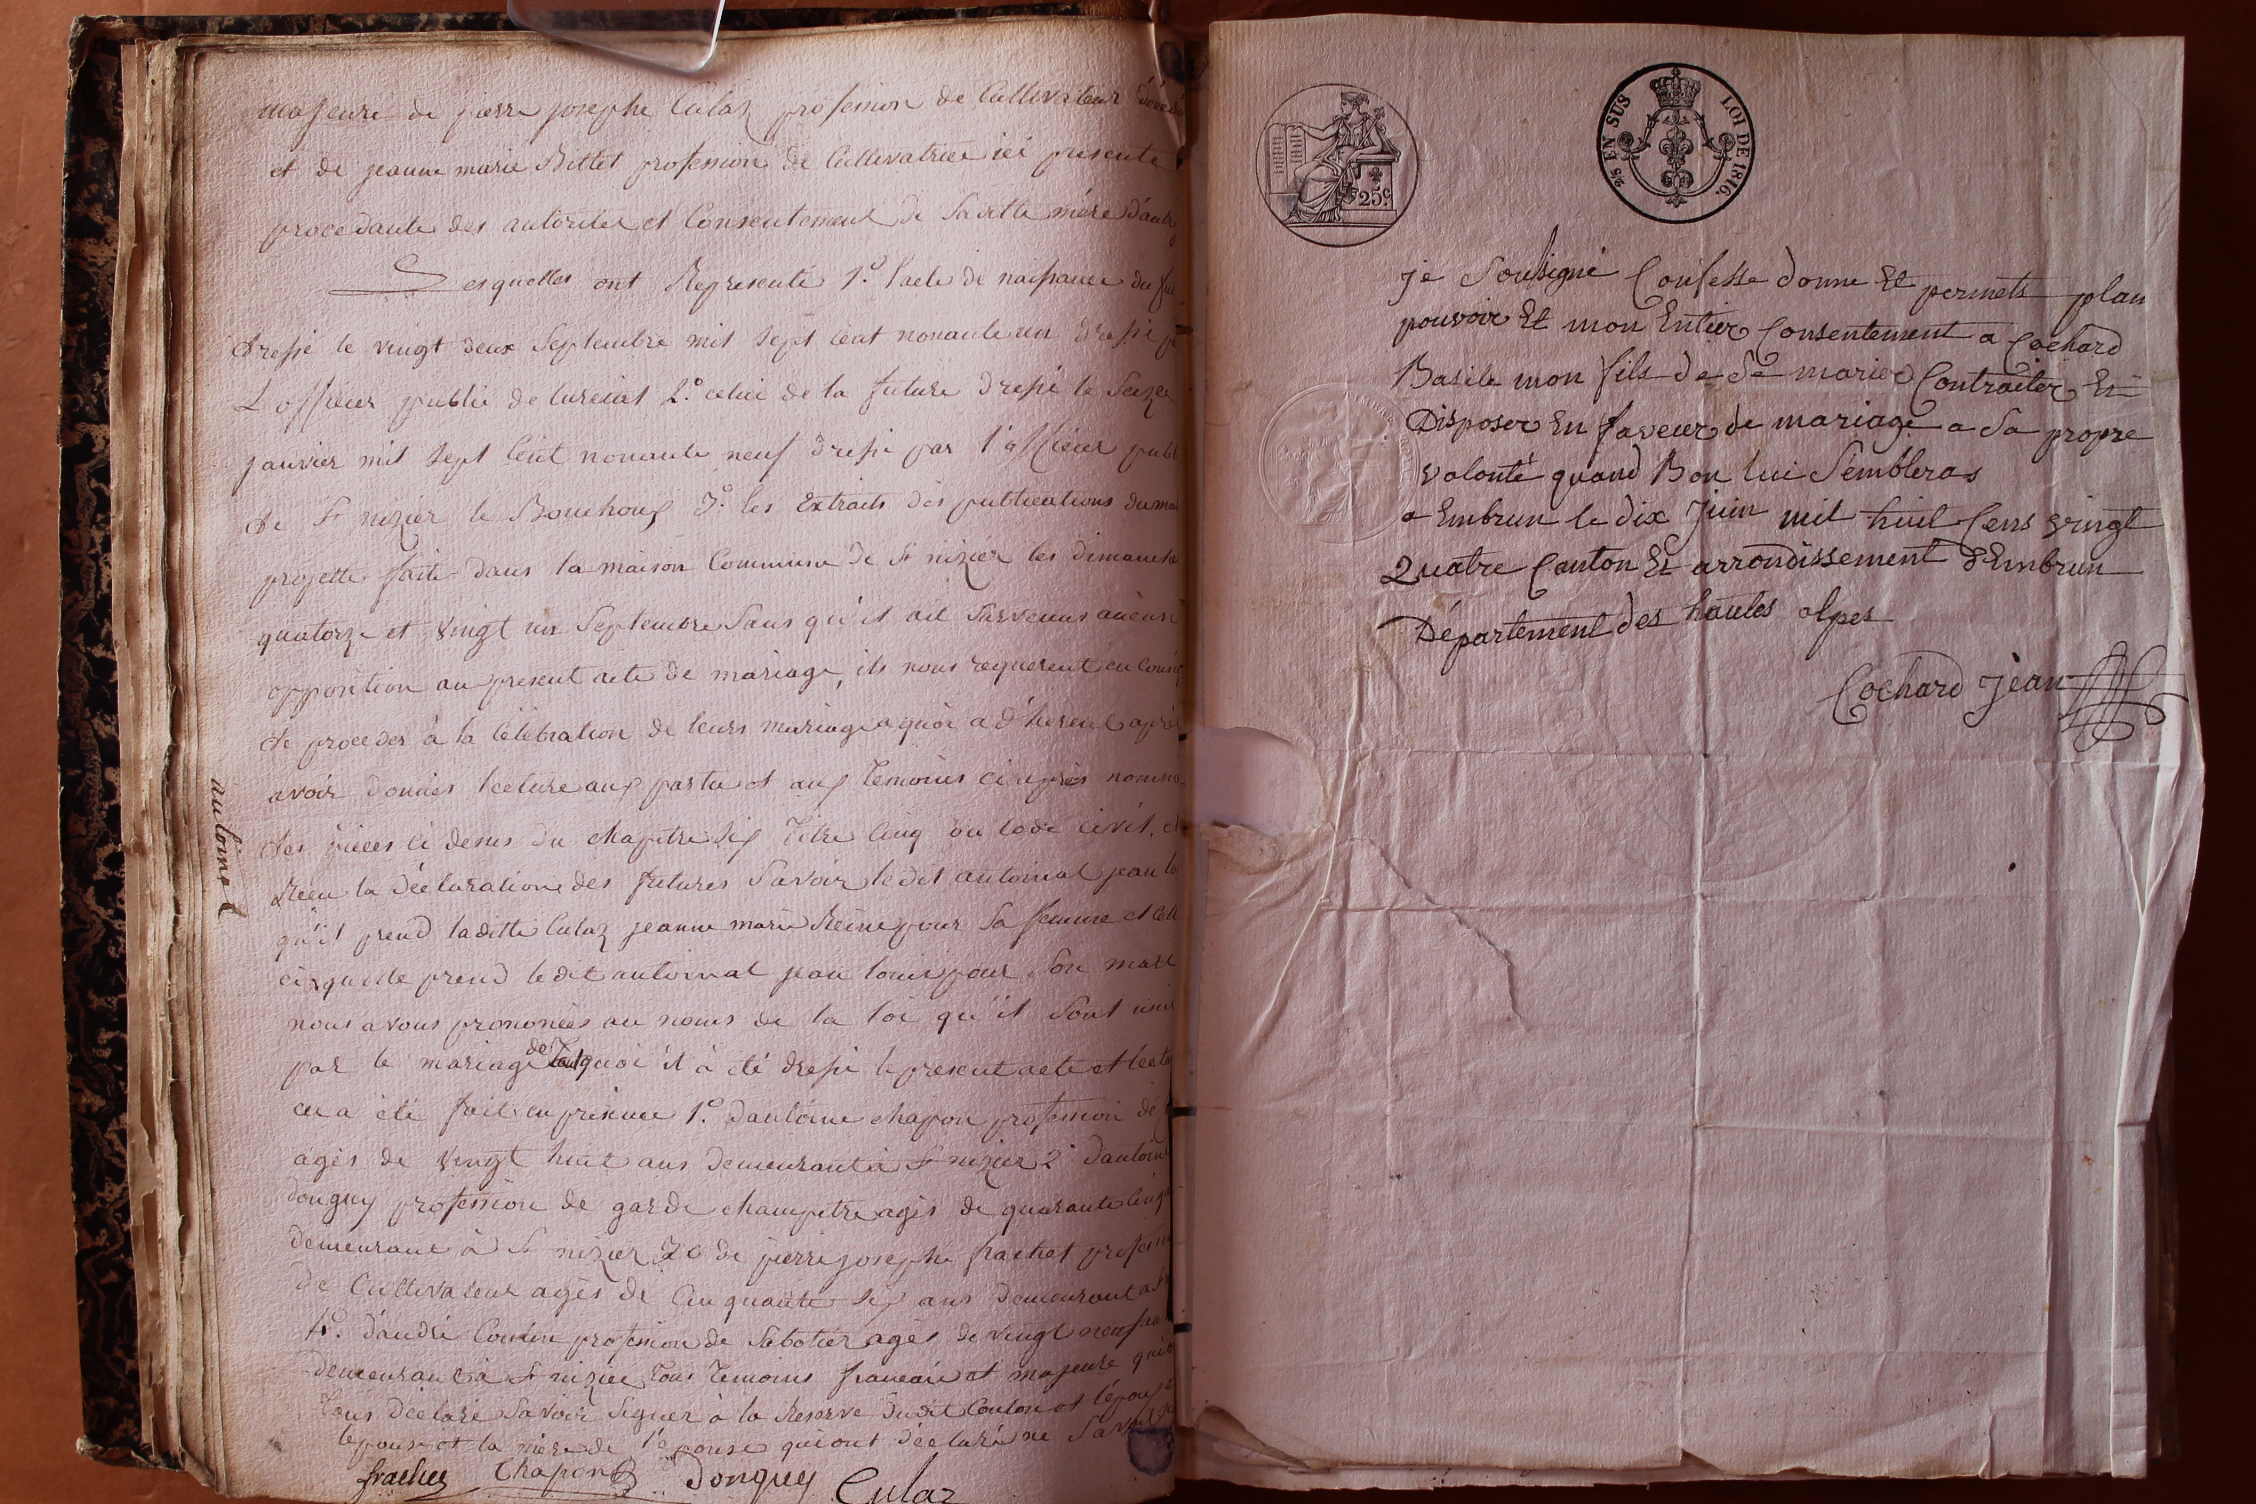 majeure de pierre josephe Culaz profession de Cultivateur décédé
et de jeanne marie Billet profession de Cultivatrice ici presente
procedante des autorités et Consentement de Saditte mère d'autre
Lesquelles ont Representé 1.º l'acte de naissance du fut
dressé le vingt deux Septembre mil sept cent nonante un dressé p
L'officier public de 2.º celui de la future dressé le Seize
janvier mil sept Cent nonante neuf dressé par l'officier publ
de St nizier le Bouchoux 3.º les Extraits des publications du ma
projetté faite dans la maison Commune de St nizier les dimanche
quatorze et vingt un Septembre Sans qu'il ait Survenus aucun
opposition au present acte de mariage, ils nous requerent en Cons
de proceder à la Célébration de leurs mariage a quoi adhérent après
avoir donnés lecture aux partie et aux Temoins ci après nommé
des pièces ci desus du chapitre six Titre Cinq du Code Civil, et
Reçu la Déclaration des futures Savoir le dit antoinat jean lo
qu'il prend laditte Culaz jeanne marie Reine pour Sa femme et Cell
ci quelle prend le dit antoinat jean louis pour Son mari
nous avons prononcés au noms de la loi qu'il Sont unis
par le mariage de Tout quoi il à été dressé le present acte et lecture
en a été fait en présence 1.º Dantoine chapon profession de
agés de vingt huit ans demeurant à St nizier 2º dantoine
donguy profession de garde champetre agés de quarante Cinq
demeurant à St nizier 3º de pierre josephe frachet profession
de Cultivateur agés de Cinquante six ans demeurant a St
4º. d'andré Coulon profession de Sabotier agés de vingt neuf an
demeurant à St nizier Tous Temoins francais et majeure qui
Tous déclaré Savoir Signer à la Reserve dudit Coulon et l'époux
lepouse et la mère de l'épouse qui ont déclaré ne Savoir
frachet Chapon Donguy Culaz
antoinat
25 c.
2/5 EN SUS LOI DE 1816.
je Soussigné Confesse donne Et permets plan
pouvoir Et mon Entier Consentement a Cochard
Basile mon fils de Se marier Contraiter Et
Disposer En faveur de mariage a Sa propre
volonté quand Bon lui Sembleras
a Embrun le dix Juin mil huit Cens vingt
Quatre Canton Et arrondissement d'Embrun
Département des hautes alpes
Cochard Jean